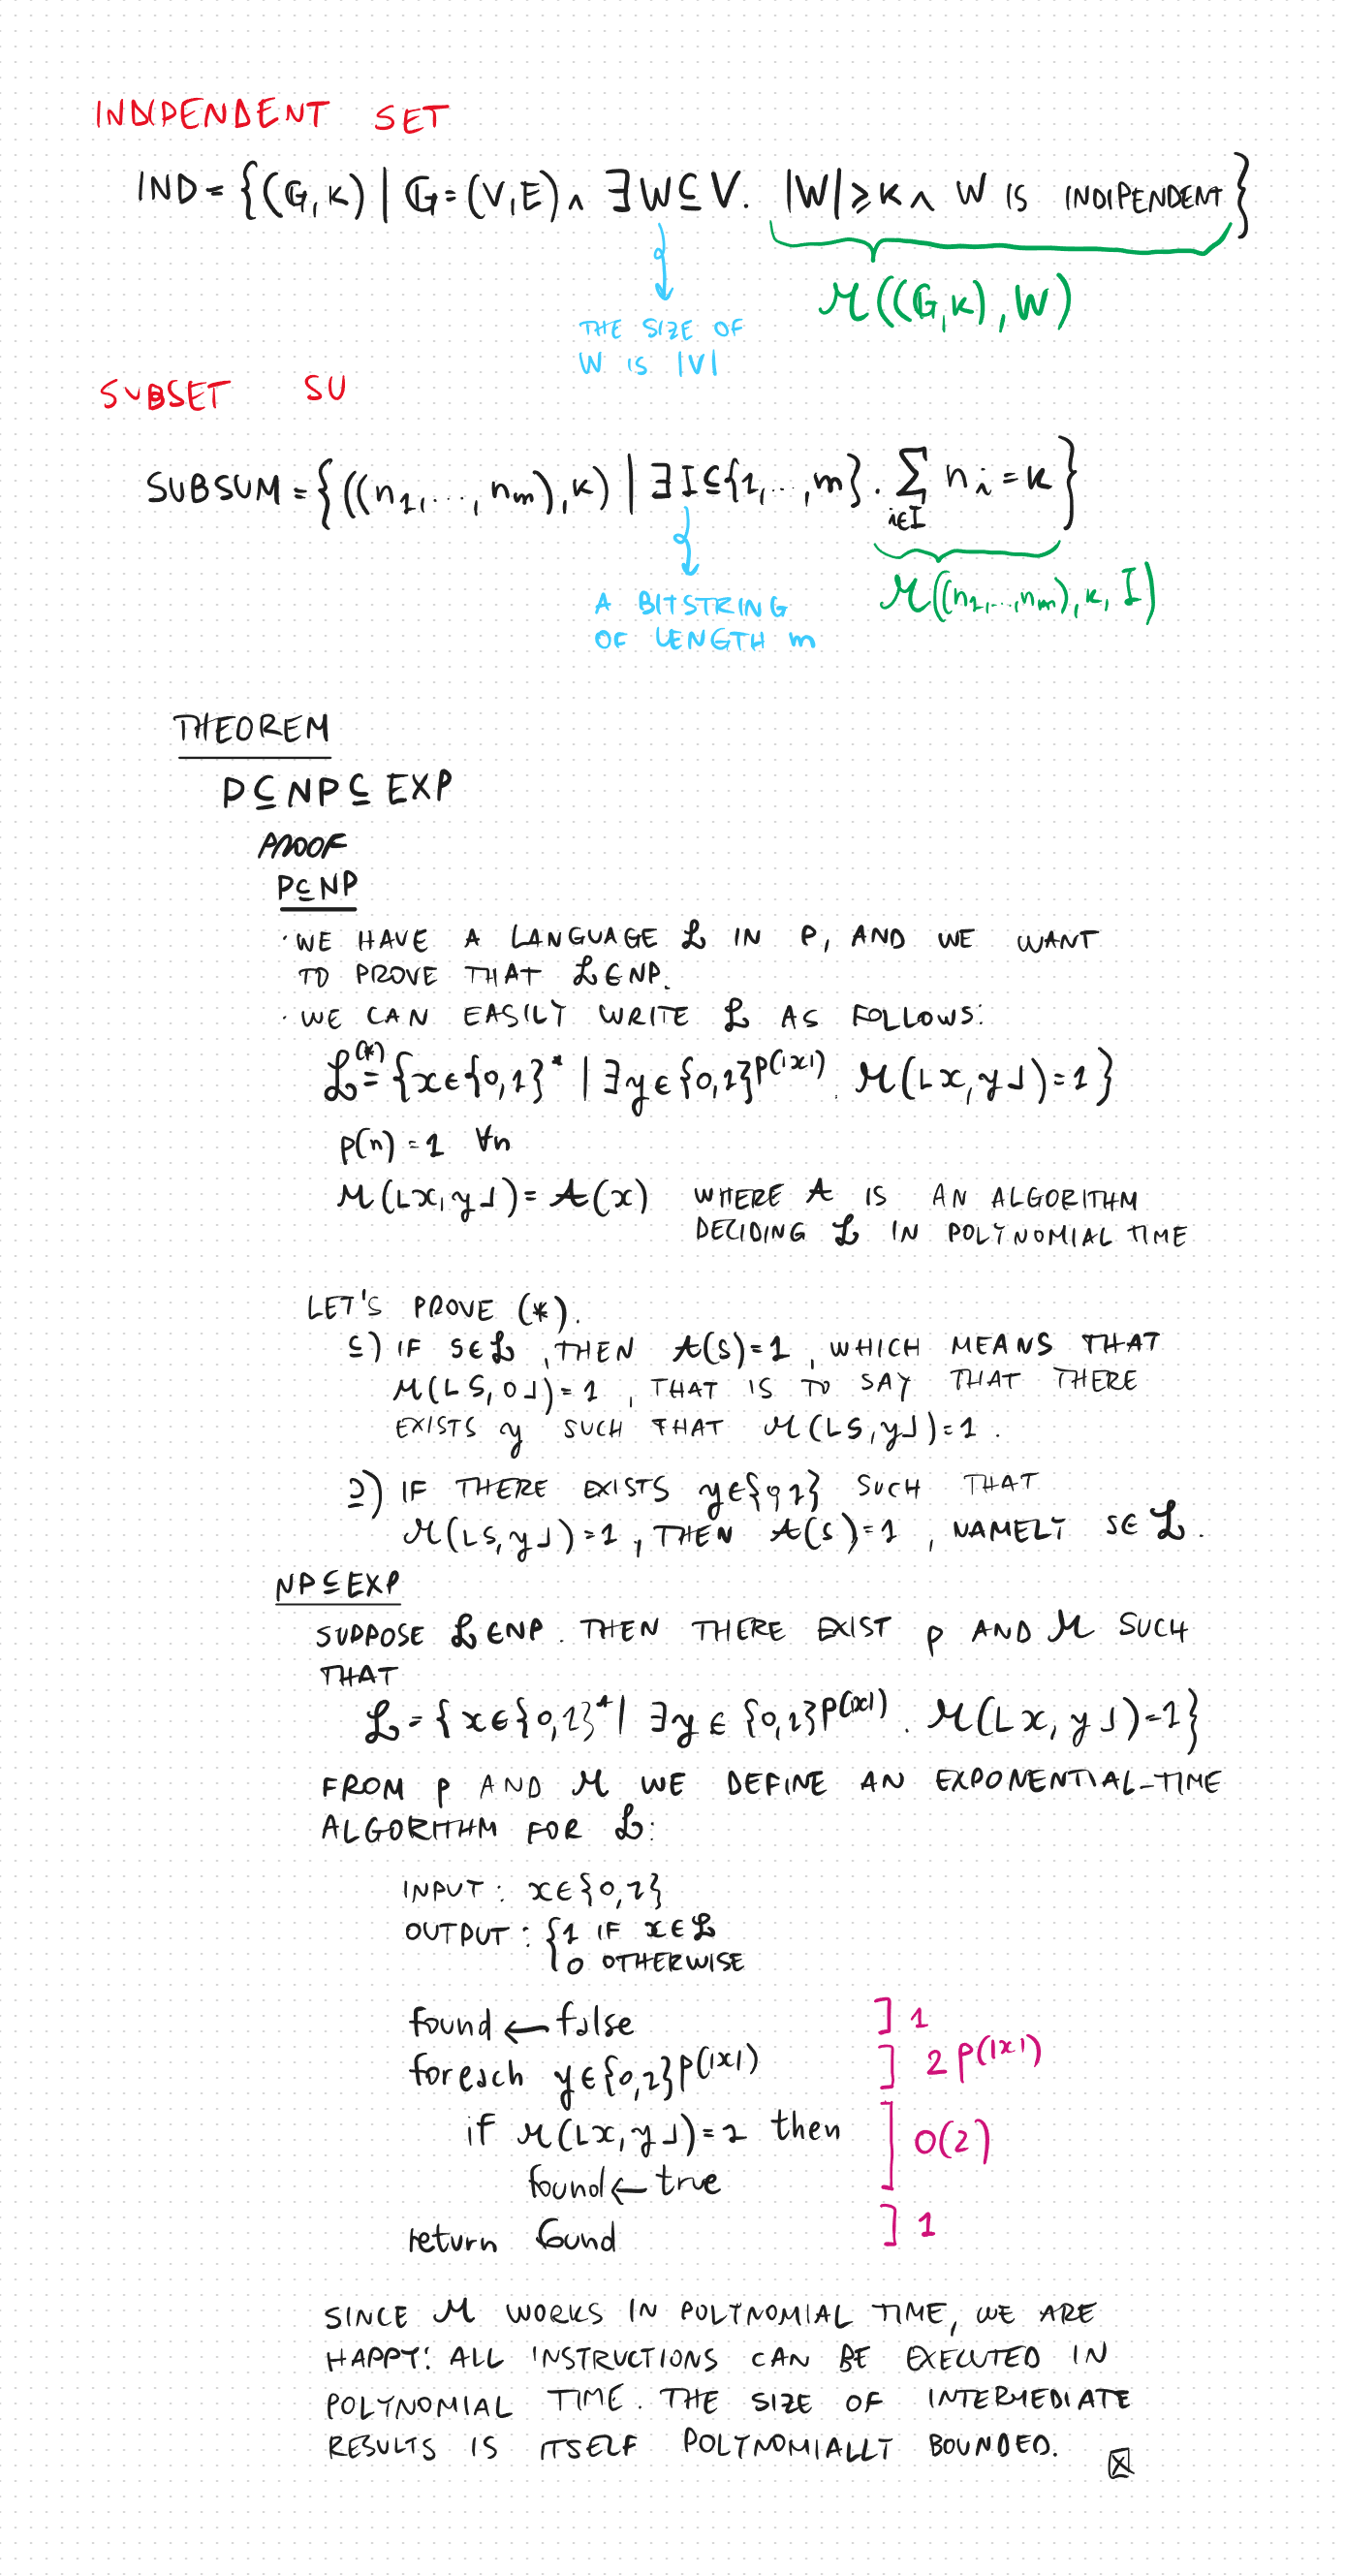 INDIPENDENT SET
IND = {(G, K) | G = (V, E) ∧ ∃W ⊆ V. |W| ≥ K ∧ W IS INDIPENDENT}
M((G, K), W)
THE SIZE OF
W IS |V|
SUBSET SU
SUBSUM = {((n1, ..., nm), K) | ∃I ⊆ {1, ..., m}. ∑i∈I ni = K}
M((n1, ..., nm), K, I)
A BITSTRING
OF LENGTH m
THEOREM
P ⊆ NP ⊆ EXP
PROOF
P ⊆ NP
· WE HAVE A LANGUAGE L IN P, AND WE WANT
TO PROVE THAT L ∈ NP.
· WE CAN EASILY WRITE L AS FOLLOWS:
L =(*) {x ∈ {0,1}* | ∃y ∈ {0,1}^p(|x|). M(⌊x, y⌋) = 1}
p(n) = 1 ∀n
M(⌊x, y⌋) = A(x) WHERE A IS AN ALGORITHM
DECIDING L IN POLYNOMIAL TIME
LET'S PROVE (*).
⊆) IF S ∈ L, THEN A(S) = 1, WHICH MEANS THAT
M(⌊S, 0⌋) = 1, THAT IS TO SAY THAT THERE
EXISTS y SUCH THAT M(⌊S, y⌋) = 1.
⊇) IF THERE EXISTS y ∈ {0,1} SUCH THAT
M(⌊S, y⌋) = 1, THEN A(S) = 1, NAMELY S ∈ L.
NP ⊆ EXP
SUPPOSE L ∈ NP. THEN THERE EXIST p AND M SUCH
THAT
L = {x ∈ {0,1}* | ∃y ∈ {0,1}^p(|x|). M(⌊x, y⌋) = 1}
FROM p AND M WE DEFINE AN EXPONENTIAL-TIME
ALGORITHM FOR L:
INPUT: x ∈ {0,1}
OUTPUT: {1 IF x ∈ L
0 OTHERWISE
found ← false ] 1
foreach y ∈ {0,1}^p(|x|) ] 2^p(|x|)
if M(⌊x, y⌋) = 1 then ] O(2)
found ← true
return found ] 1
SINCE M WORKS IN POLYNOMIAL TIME, WE ARE
HAPPY: ALL INSTRUCTIONS CAN BE EXECUTED IN
POLYNOMIAL TIME. THE SIZE OF INTERMEDIATE
RESULTS IS ITSELF POLYNOMIALLY BOUNDED. ☒